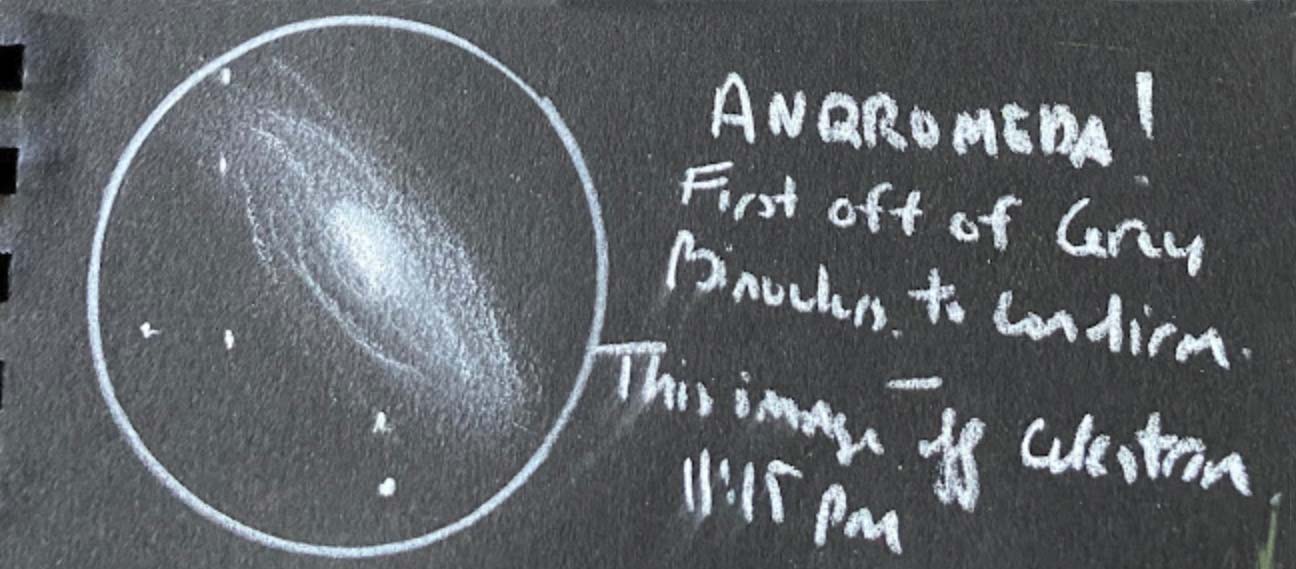 ANDROMEDA!
First off of Gray
Binoculars. to Confirm.
—
This image off Celestron.
11:15 pm